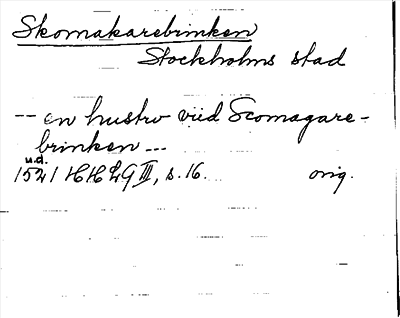 Skomakarebrinken
Stockholms stad
-- en hustrv viid Scomagare-
brinken ---
u.d.
1541 HH LG III, s. 16. orig.